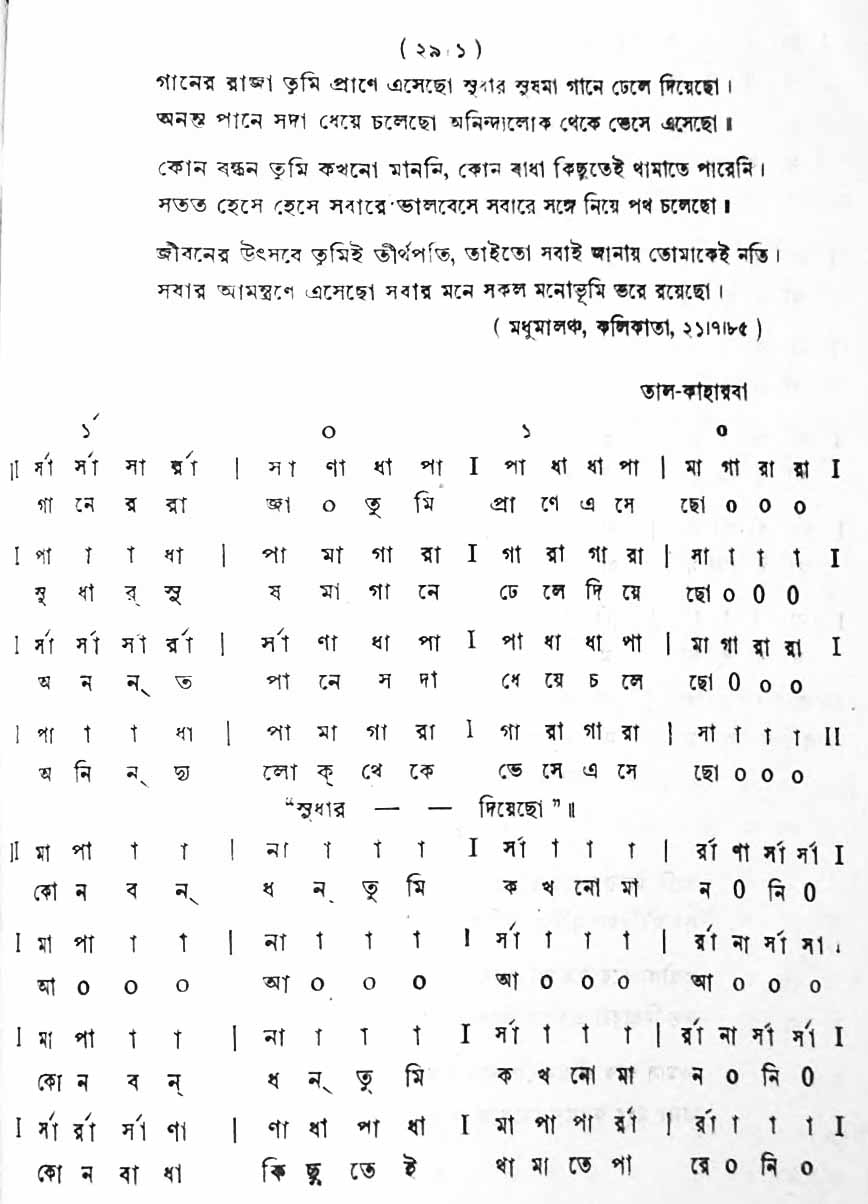 ( ২৯ ১ )
গানের রাজা তুমি প্রাণে এসেছো সুধার সুষমা গানে ঢেলে দিয়েছো ।
অনন্ত পানে সদা ধেয়ে চলেছো অনিন্দ্যলোক থেকে ভেসে এসেছো ॥
কোন বন্ধন তুমি কখনো মাননি, কোন বাধা কিছুতেই থামাতে পারেনি ।
সতত হেসে হেসে সবারে ভালবেসে সবারে সঙ্গে নিয়ে পথ চলেছো ॥
জীবনের উৎসবে তুমিই তীর্থপতি, তাইতো সবাই জানায় তোমাকেই নতি ।
সবার আমন্ত্রণে এসেছো সবার মনে সকল মনোভূমি ভরে রয়েছো ।
( মধুমালঞ্চ, কলিকাতা, ২১।৭।৮৫ )
তাল-কাহারবা
১´ ০ ১ ০
॥ র্সা র্সা সা র্রা | সা ণা ধা পা I পা ধা ধা পা | মা গা রা রা I
গা নে র রা জা ০ তু মি প্রা ণে এ সে ছো ০ ০ ০
I পা া া ধা | পা মা গা রা I গা রা গা রা | সা া া া I
সু ধা র্ সু ষ মা গা নে ঢে লে দি য়ে ছো ০ ০ ০
I র্সা র্সা সা র্রা | র্সা ণা ধা পা I পা ধা ধা পা | মা গা রা রা I
অ ন ন্ ত পা নে স দা ধে য়ে চ লে ছো ০ ০ ০
I পা া া ধা | পা মা গা রা I গা রা গা রা | সা া া া II
অ নি ন্ দ্য লো ক্ থে কে ভে সে এ সে ছো ০ ০ ০
“সুধার — — দিয়েছো” ॥
॥ মা পা া া | না া া া I র্সা া া া | র্রা ণা র্সা র্সা I
কো ন ব ন্ ধ ন্ তু মি ক খ নো মা ন ০ নি ০
I মা পা া া | না া া া I র্সা া া া | র্রা না র্সা সা .
আ ০ ০ ০ আ ০ ০ ০ আ ০ ০ ০ আ ০ ০ ০
I মা পা া া | না া া া I র্সা া া া | র্রা না র্সা র্সা I
কো ন ব ন্ ধ ন্ তু মি ক খ নো মা ন ০ নি ০
I র্সা র্রা র্সা ণা | ণা ধা পা ধা I মা পা পা র্রা | র্রা া া া I
কো ন বা ধা কি ছু তে ই থা মা তে পা রে ০ নি ০